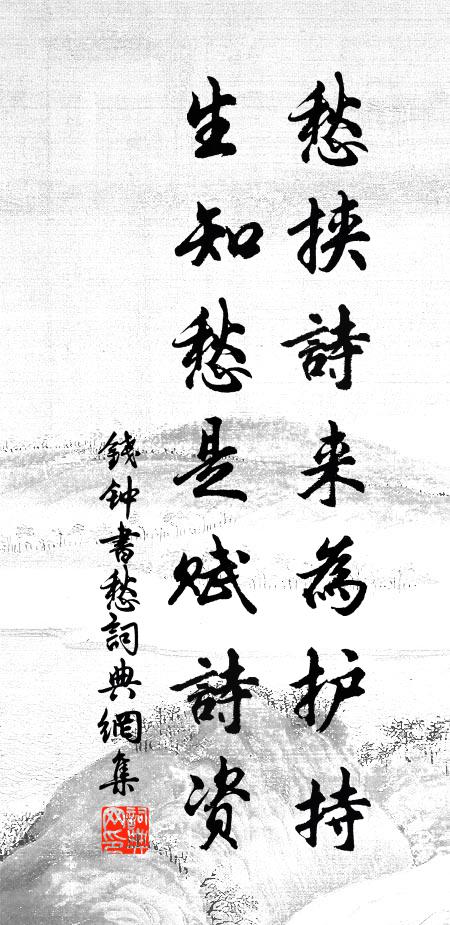 愁挟詩来為护持
生知愁是赋詩资
錢钟書愁詞典網集